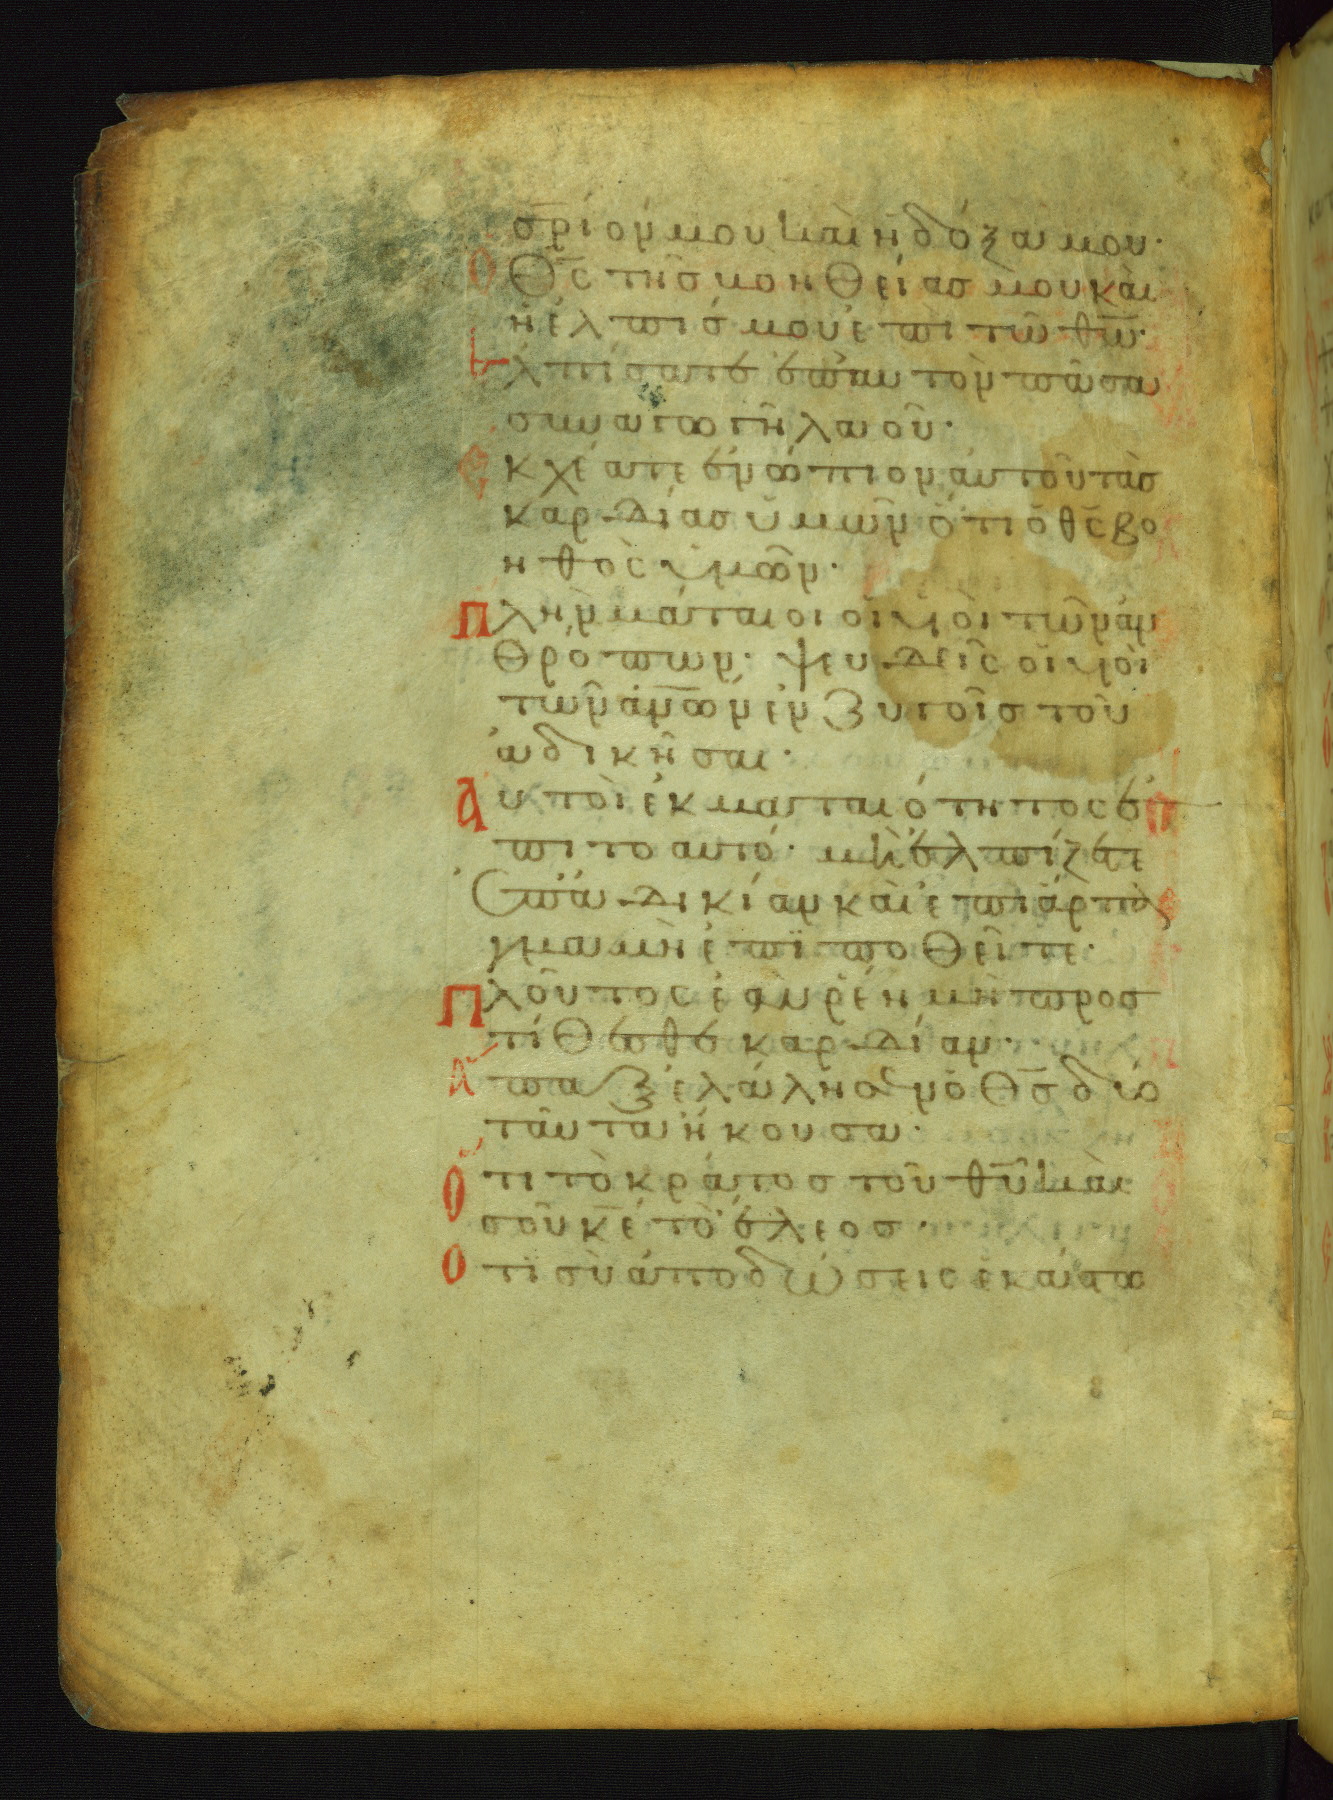 σ̅ρ̅ί ού μου καὶ ἡ δόξα μου·
Ὁ θ̅ς τῆς βοηθείας μου καὶ
ἡ ἐλπίς μου ἐπὶ τῶ θ̅ω̅·
Ἐλπίσατε ἐπ' αυτὸν πᾶσα
συναγωγὴ λαοῦ·
Ἐκχέατε ἐνώπιον αυτοῦ τὰσ
καρδίας ὑμῶν ὅτι ὁ θ̅ς βο
ηθὸς ὑμῶν·
Πλὴν μάταιοι οἱ υἱοὶ τῶν ἀν
θρόπων· ψευδεῖς οἱ υἱοὶ
τῶν ἀ̅ν̅ω̅ν ἐν ζυγοῖς τοῦ
ἀδικῆσαι·
Αυτοὶ ἐκ ματαιότητος ἐ
πι το αυτό· μὴ ἐλπίζετε
ἐπ' ἀδικίαν καὶ ἐπὶ ἁρπὰ
γμα μὴ ἐπϊποθεῖτε·
Πλοῦτος ἐὰν ρέη μὴ προσ
τίθεσθε καρδίαν·
Ἅπαξ ἐλάλησεν ὁ θ̅ς δύο
ταῦτα ἤκουσα·
Ὅτι τὸ κράτος τοῦ θ̅υ̅ καὶ
σοῦ κ̅ε̅ τὸ ἔλεος·
Ὅτϊ σὺ ἀποδώσεις ἑκάστω